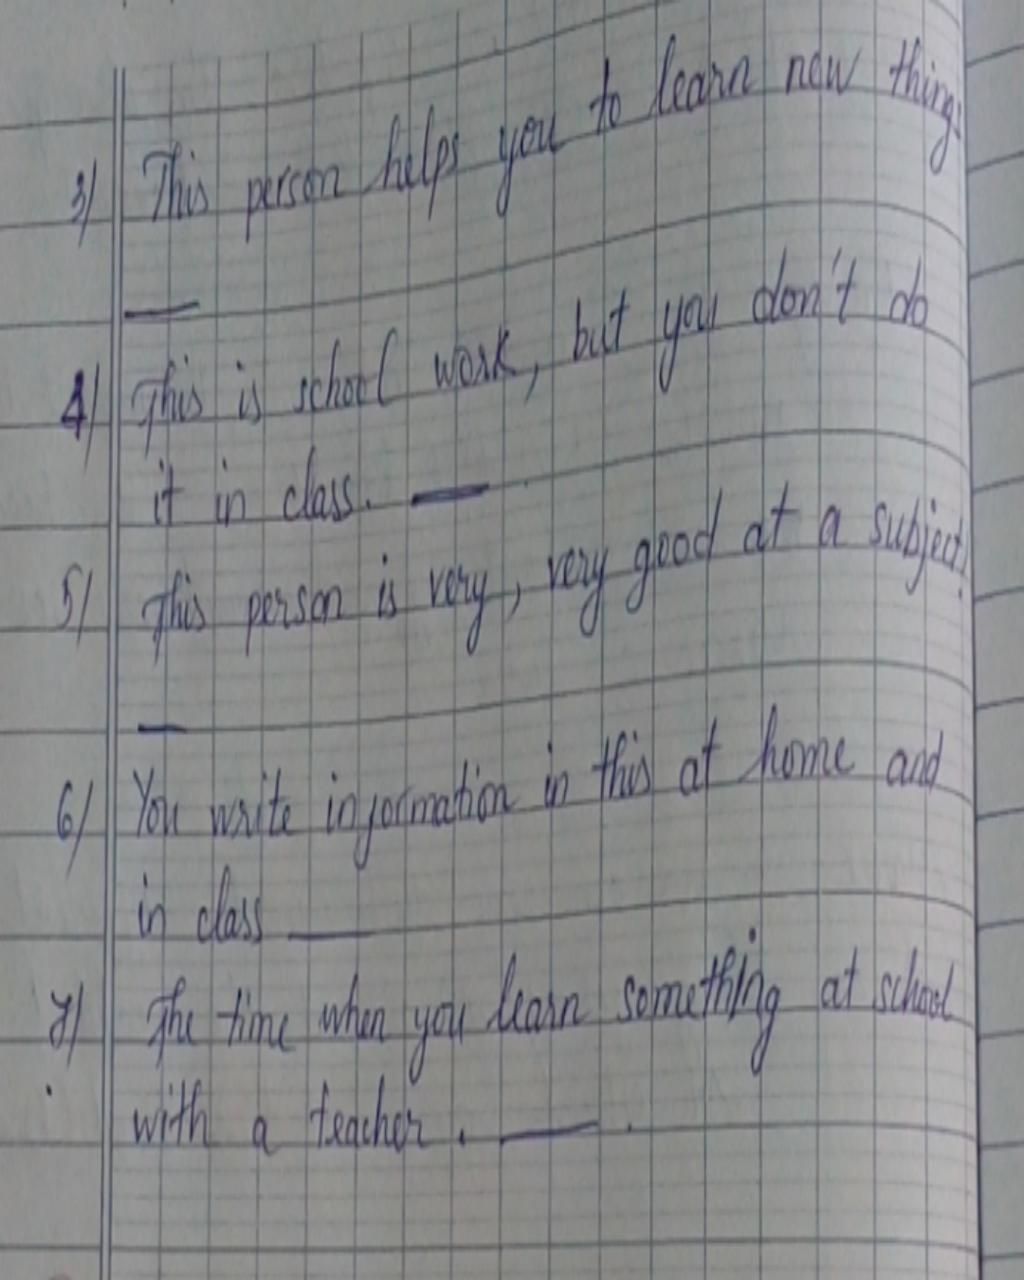 3) This person helps you to learn new things
4) This is school work, but you don't do
it in class.
5) This person is very, very good at a subject.
6) You write information in this at home and
in class
7) The time when you learn something at school
with a teacher.